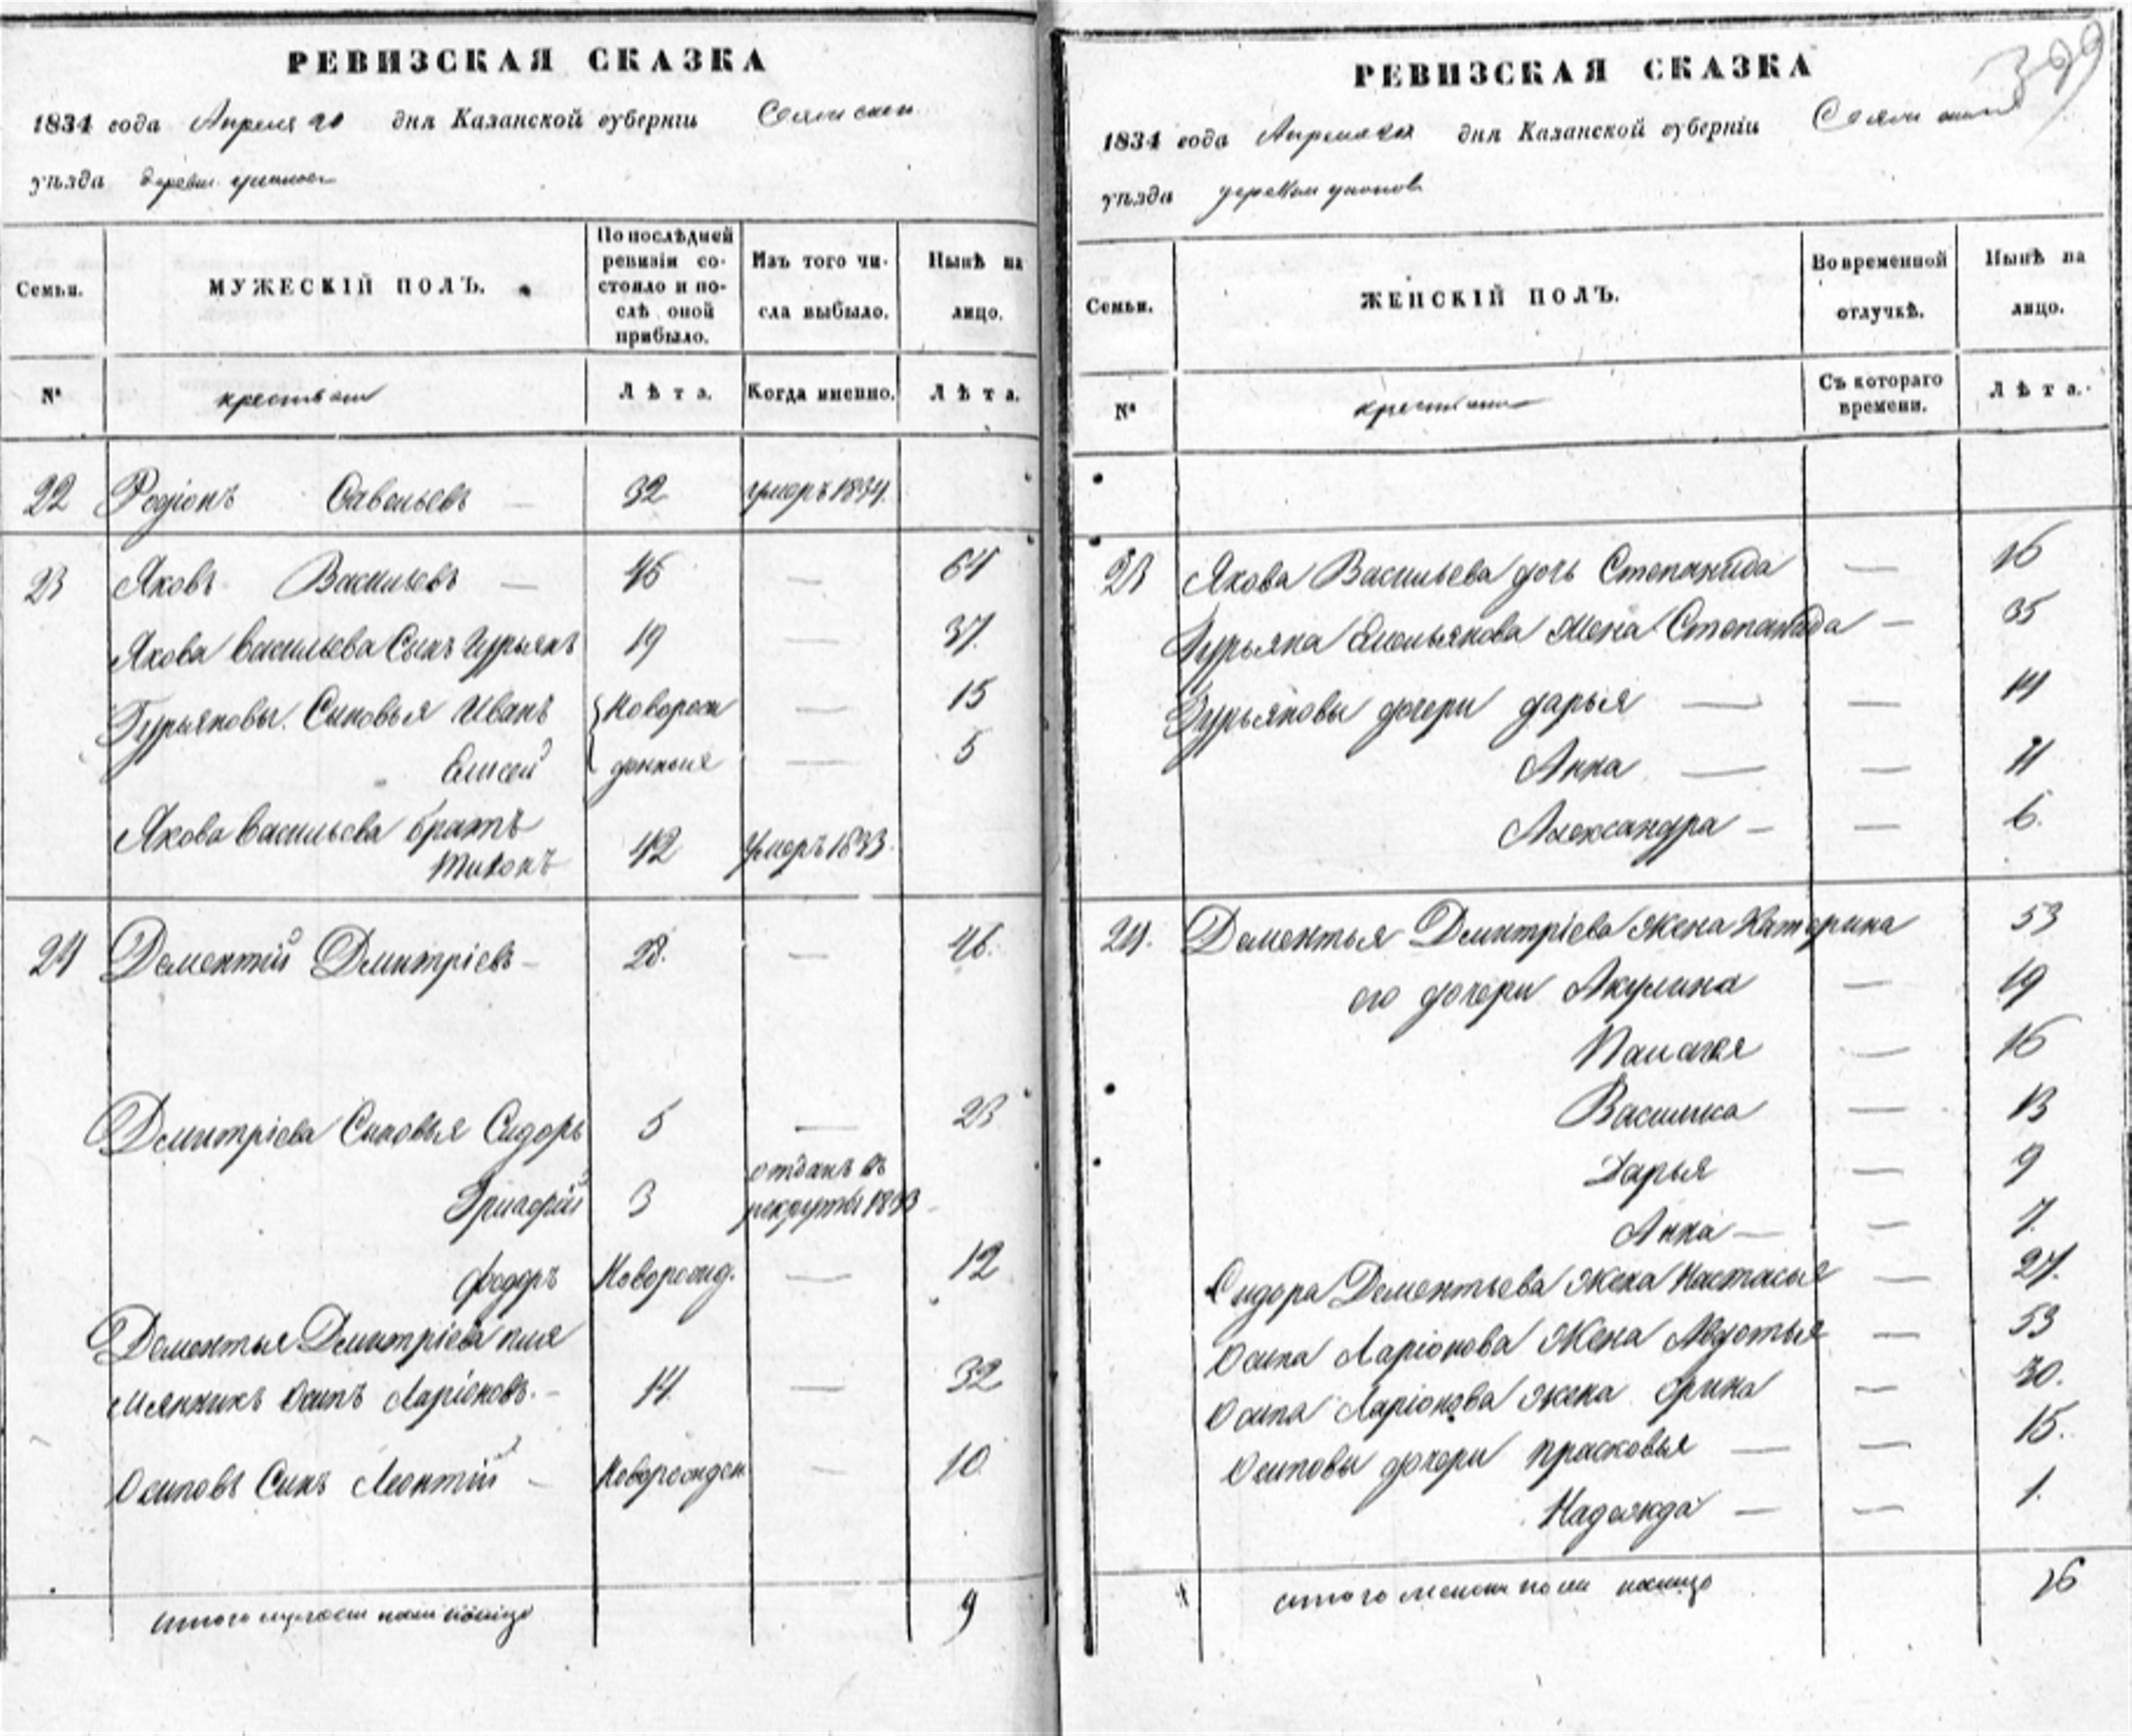 РЕВИЗСКАЯ СКАЗКА
1834 года Апреля 20 дня Казанской губерніи
уѣзда
Семьи.
МУЖЕСКІЙ ПОЛЪ.
По послѣдней
ревизіи со-
стояло и по-
слѣ оной
прибыло.
Изъ того чи-
сла выбыло.
Нынѣ на
лицо.
№
крестьяне
Лѣта.
Когда именно.
Лѣта.
22 Родіонъ Савельевъ — 32 умеръ 1834.
23 Яковъ Васильевъ — 46 — 64
Якова Васильева Сынъ Гурьянъ 19 — 37.
Гурьяновы Сыновья Иванъ Новорож — 15
Елисей денныя — 5
Якова Васильева братъ
Тихонъ 42 Умеръ 1833.
24 Дементій Дмитріевъ — 28. — 46.
Дмитріева Сыновья Сидоръ 5 — 23
отданъ въ
Григорій 3 рекруты 1833
Федоръ Новорожд. — 12
Дементья Дмитріева пле
мянникъ Осипъ Ларіоновъ. — 14. — 32
Осиповъ Сынъ Леонтій — Новорожден — 10
Итого мужеска пола налицо 9
399
РЕВИЗСКАЯ СКАЗКА
1834 года Апреля дня Казанской губерніи
уѣзда
Семьи.
ЖЕНСКІЙ ПОЛЪ.
Во временной
отлучкѣ.
Нынѣ на
лицо.
№
крестьяне
Съ котораго
времени.
Лѣта.
23 Якова Васильева дочь Степанида — 16
Гурьяна жена Степанида — 35
Гурьяновы дочери Дарья — — 14
Анна — — 11
Александра — — 6.
24. Дементья Дмитріева жена Катерина 53
его дочери Акулина — 19
Палагея — 16
Василиса — 13
Дарья — 9
Анна — — 7.
Сидора Дементьева жена Настасья — 27.
Осипа Ларіонова жена Авдотья — 53
Осипа Ларіонова жена Орина — 30.
Осиповы дочери Прасковья — — 15.
Надежда — — 1.
Итого женска пола налицо 16